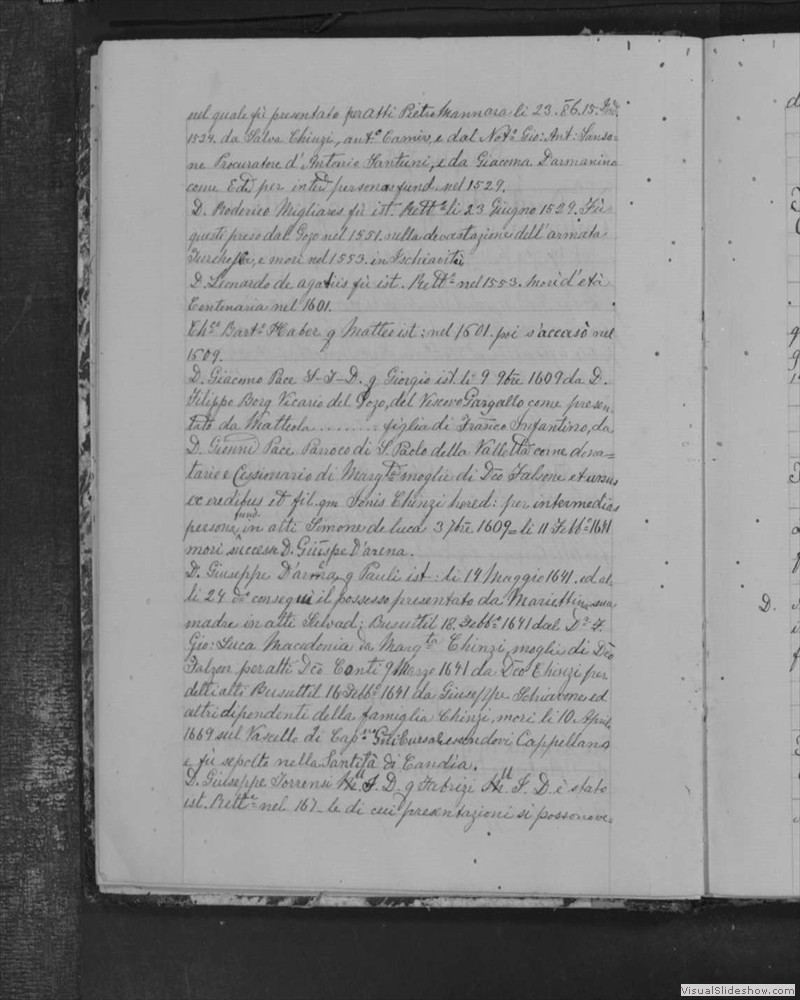 nel quale fù presentato per atti Pietro Mannara li 23. 8b. 15. Ind.
1524. da Salva Chinzi, ant.° Camiro, e dal Not.° Gio: Ant: Sanso-
ne Procuratore d'Antonio Santuni, e da Giacoma Darmanino
come Ed. per inter personas fund. nel 1529.
D. Roderico Migliares fù ist. Rett.e li 23 Giugno 1529. Fù
questi preso dal Gozo nel 1551. nella devastazione dell'armata
Turchesca, e morì nel 1553. in Ischiavitù
D. Leonardo de agatiis fù ist. Rett.e nel 1553. Morì d'età
Centenaria nel 1601.
Ch.co Bart.° Haber q Matteo ist: nel 1601. poi s'accasò nel
1609.
D. Giacomo Pace J-J-D. q Giorgio ist. li 9 9bre 1609 da D.
Filippo Borg Vicario del Gozo, del Vescovo Gargallo come presen-
tato da Matteola ......... figlia di Franco Infantino, da
D. Gionni Pace Parroco di S. Paolo della Valletta come dona=
tario e Cessionario di Marg.ta moglie di Dco Falsone et unus
ex eredibus et fil. qm Jonis Chinzi hered: per intermedias
persone, fund. in atti Simone de luca 3 7bre 1609= li 11 Febb.o 1641
morì successe D. Giuspe D'arena.
D. Giuseppe D'armena q Pauli ist: li 14 Maggio 1641. ed al
li 24 d.o conseguì il possesso presentato da Mariettina sua
madre in atti Salvad: Busuttil 18. Febb.o 1641 dal D.r F.
Gio: Luca Macedonia da Marg.ta Chinzi, moglie di Dco
Falzon per atti Dco Conti 9 Marzo 1641 da Dco Chinzi per
detti atti Busuttil 16 Febb.o 1641 da Giuseppe Schiavone ed
altri dipendenti della famiglia Chinzi, morì li 10 Aprile
1669 sul Vascello di Cap.no essendovi Cappellano
e fù sepolto nella Santità di Candia.
D. Giuseppe Torrensi J. D. q Fabrizi J. D. è stato
ist. Rett.e nel 167- le di cui presentazioni si possono ve-
D.
VisualSlideshow.com